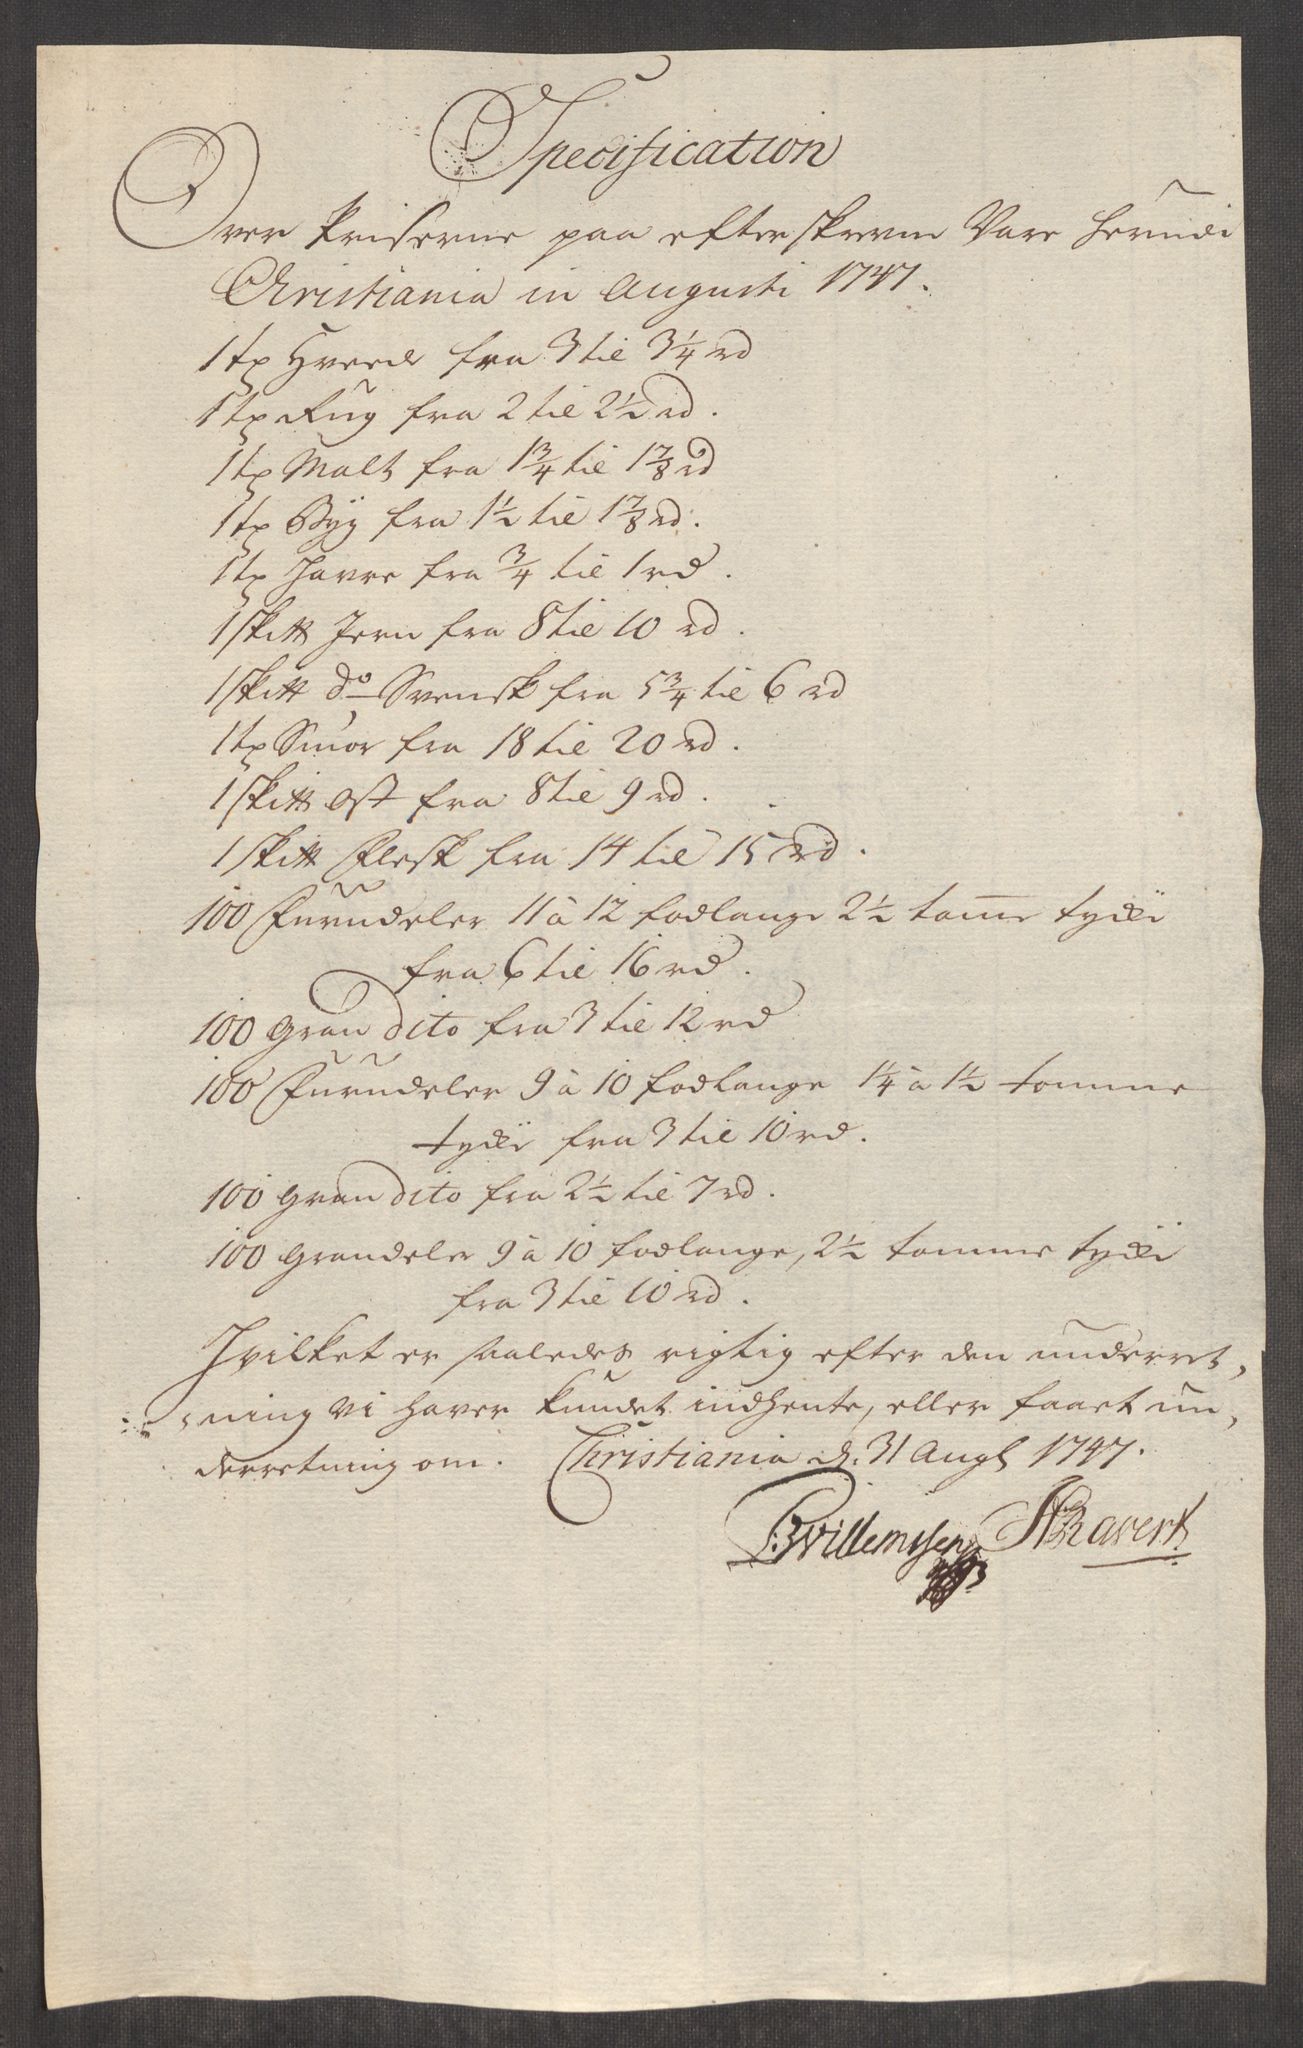 Specification
Over Priserne paa efterskrevne Vare herudi
Christiania in Augusti 1747.
1 tr Hvede fra 3 til 3 1/4 rd
1 tr Rug fra 2 til 2 1/2 rd.
1 tr Malt fra 1 3/4 til 1 7/8 rd
1 tr Byg fra 1 1/2 til 1 7/8 rd.
1 tr Havre fra 3/4 til 1 rd.
1 skitt Jern fra 8 til 10 rd.
1 skitt do Svensk fra 5 3/4 til 6 rd
1 tr Smør fra 18 til 20 rd.
1 skitt Ost fra 8 til 9 rd.
1 skitt Flesk fra 14 til 15 rd.
100 Furudeler 11 à 12 fodlange 2 1/2 tome tycke
fra 6 til 16 rd.
100 Gran dito fra 3 til 12 rd
100 Furudeler 9 à 10 fodlange 1 1/4 à 1 1/2 tomme
tycke fra 3 til 10 rd.
100 Gran dito fra 2 1/2 til 7 rd.
100 Grandeler 9 à 10 fodlange, 2 1/2 tomme tycke
fra 3 til 10 rd.
Hvilket er saaledes rigtig efter den underret,
ning vi haver kundet indhente, eller faaet un,
derretning om. Christiania d. 31 Augs 1747.
Bvillemssen HRavert